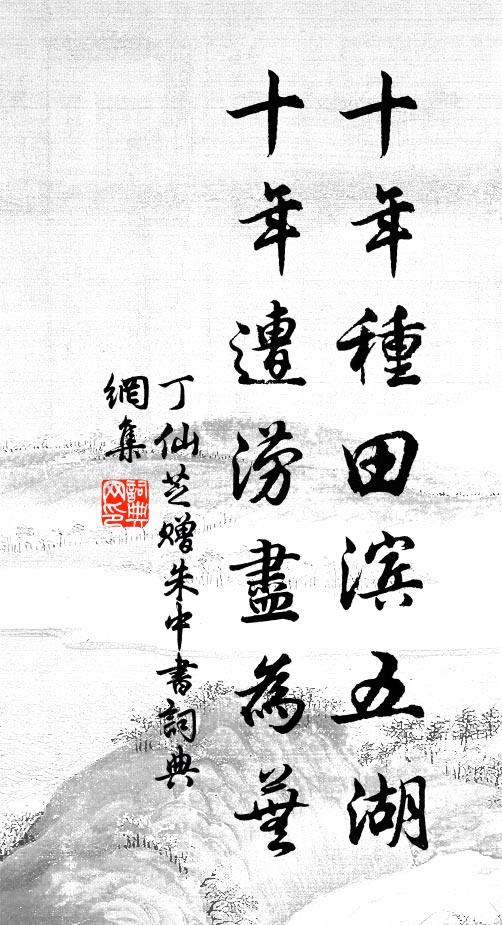 十年種田滨五湖
十年遭涝盡為蕪
丁仙芝赠朱中書詞典
網集
詞典
网印